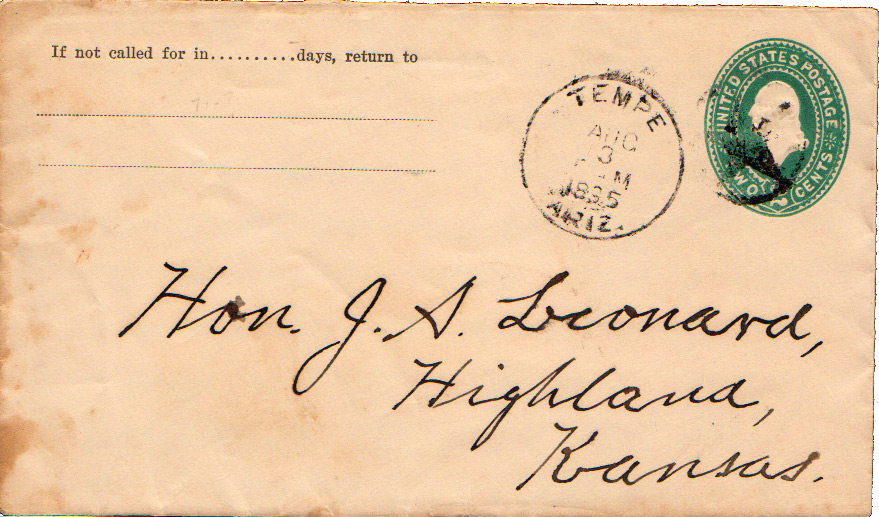 If not called for in..........days, return to
UNITED STATES POSTAGE
TWO CENTS
TEMPE
AUG
3
M
1895
ARIZ.
Hon. J. S. Leonard,
Highland,
Kansas.